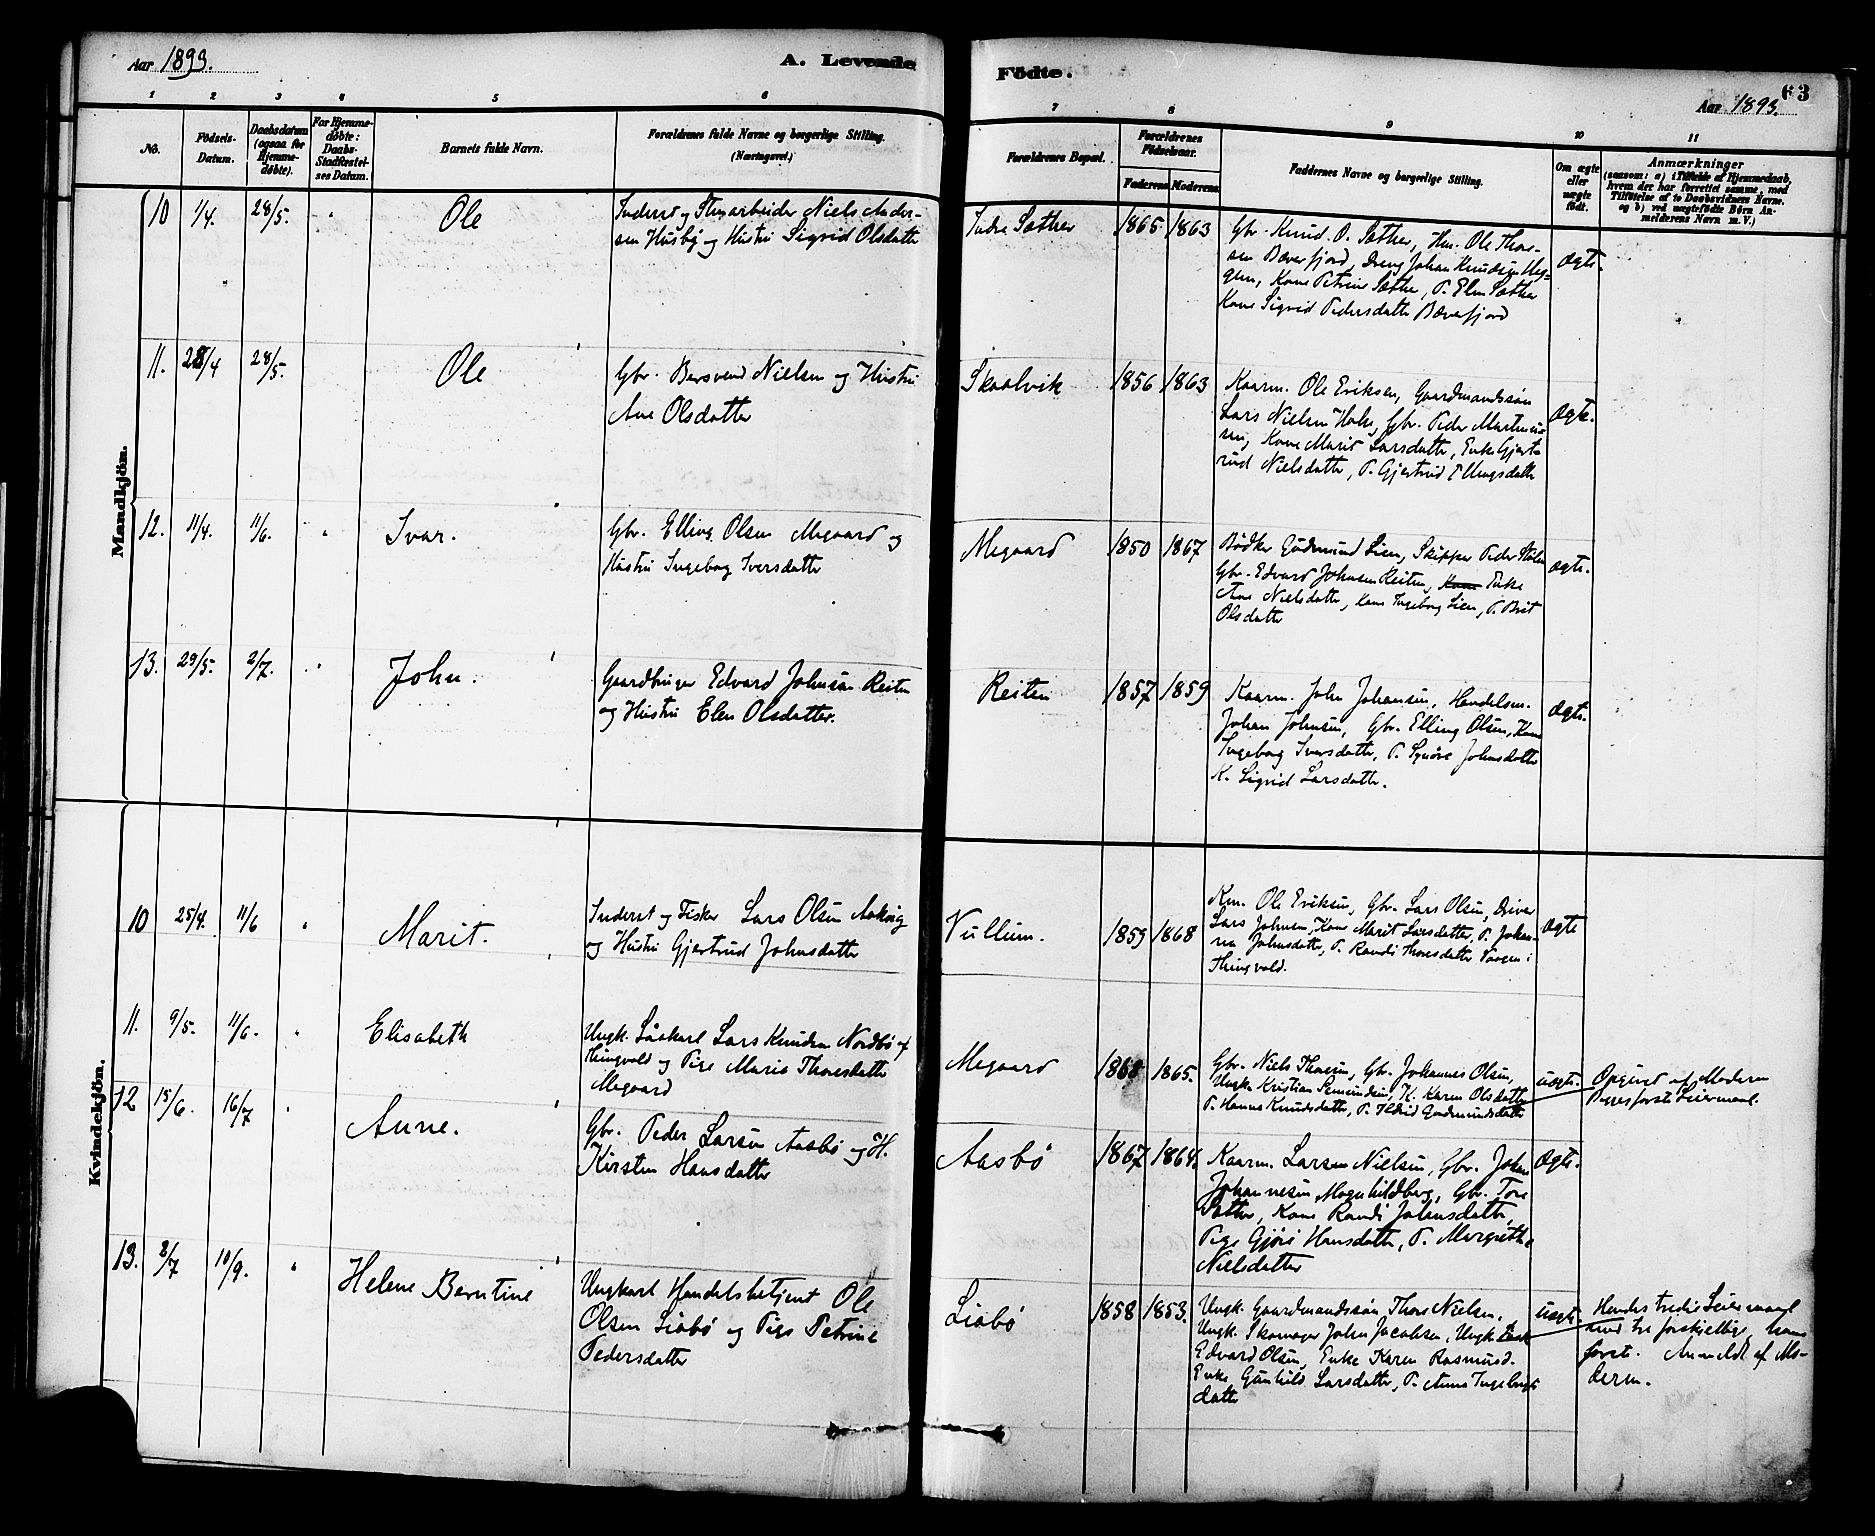 Aar 1893.
A. Levende
1 2 3 4 5 6
No.
Födsels-Datum.
Daabsdatum (ogsaa for Hjemme-døbte).
For Hjemme-døbte: Daabs-Stadfæstel-ses Datum.
Barnets fulde Navn.
Forældrenes fulde Navne og borgerlige Stilling. (Næringsvei.)
Mandkjön.
10 1/4. 28/5. " Ole
Inderst og Stenarbeider Niels Ander-
sen Husby og Hustru Sigrid Olsdatter
11. 28/4 28/5. Ole
Gbr. Bersvend Nielsen og Hustru
Ane Olsdatter
12. 11/4. 11/6. " Ivar.
Gbr. Elling Olsen Megaard og
Hustru Ingeborg Iversdatter
13. 29/5. 2/7. " John.
Gaardbruger Edvard Johnsen Reiten
og Hustru Elen Olsdatter.
Kvindekjön.
10 25/4. 11/6 " Marit.
Inderst og Fisker Lars Olsen Aakvig
og Hustru Gjertrud Johnsdatter
11. 9/5. 11/6. " Elisabeth
Ungk. Lars Knudsen Nordbö af
Thingvold og Pige Marie Thoresdatter
Megaard
12 15/6. 16/7 " Anne.
Gbr. Peder Larsen Aasbö og H.
Kirsten Hansdatter
13. 2/7 10/9. " Helene Berntine
Ungkarl Handelsbetjent Ole
Olsen Liabö og Pige Petrine
Pedersdatter
Födte.
63
Aar 1893.
7 8 9 10 11
Forældrenes Bopæl.
Forældrenes Födselsaar.
Faderens. Moderens.
Faddernes Navne og borgerlige Stilling.
Om ægte eller uægte født.
Anmærkninger
(saasom: a) i Tilfælde af Hjemmedaab,
hvem der har forrettet samme, med
Tilföielse af to Daabsvidners Navne.
og b) ved uægtefödte Börn An-
melderens Navn m. V.)
Indre Sæther 1865 1863
Gbr. Knud O. Sæther, Hm. Ole Thore-
sen Bæverfjord, Dreng Johan Knudsen Heg-
gem, Kone Petrine Sæther, P. Elen Sæther
Kone Sigrid Pedersdatter Bæverfjord
ægte.
Skaalvik 1856 1863
Kaarm. Ole Eriksen, Gaardmandssøn
Lars Nielsen Holm, Gbr. Peder Martinus-
sen, Kone Marit Larsdatter, Enke Gjert-
rud Nielsdatter, P. Gjertrud Ellingsdatter
ægte.
Megaard 1850 1867
Bödker Gudmund Lien, Skipper Peder Stölen
Gbr. Edvard Johnsen Reiten, Kone Enke
Ane Nielsdatter, Kone Ingeborg Lien, P. Brit
Olsdatter
ægte.
Reiten 1857 1859
Kaarm. John Johansen, Handelsm.
Johan Johnsen, Gbr. Elling Olsen, Kone
Ingeborg Iversdatter, P. Synöve Johnsdatter
K. Sigrid Larsdatter.
ægte.
Vullum. 1859 1868
Km. Ole Eriksen, Gbr. Lars Olsen, Driver
Lars Johnsen, Kone Marit Larsdatter, P. Johan-
na Johnsdatter, P. Randi Thoresdatter Vaagen i
Thingvold.
ægte
Megaard 1868 1865.
Gbr. Niels Thoresen, Gbr. Johannes Olsen,
Ungk. Kristian Gudmundsen, K. Karen Olsdatter
P. Hanna Knudsdatter, P. Ildrid Gudmundsdatter
uægte.
Opgivet af Moderen
Begges første Leiermaal.
Aasbö 1867 1864.
Kaarm. Larsen Nielsen, Gbr. Johan
Johannesen Magnhildberg, Gbr. Tore
Sæther, Kone Randi Johnsdatter,
Pige Gjöri Hansdatter, P. Margrethe
Nielsdatter
ægte.
Liabö 1858 1853.
Ungk. Gaardmandssøn Thore Nielsen,
Ungk. Skomager John Jacobsen, Ungk.
Edvard Olsen, Enke Karen Rasmusd.
Enke Gunhild Larsdatter, P. Anna Ingebrigts
datter
uægte
Hendes tredie Leiermaal
med tre forskjellige, hans
første. Anmeldt af Mo-
deren.